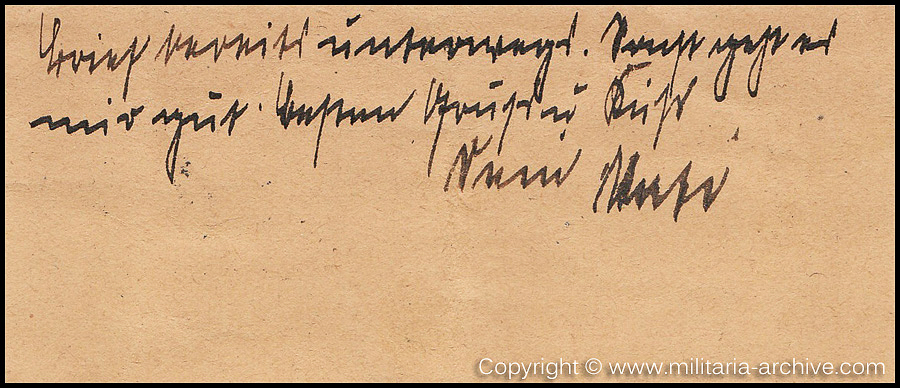 Brief bereits unterwegs. Sonst geht es
mir gut. Besten Gruss u Kuss
Dein
Copyright © www.militaria-archive.com